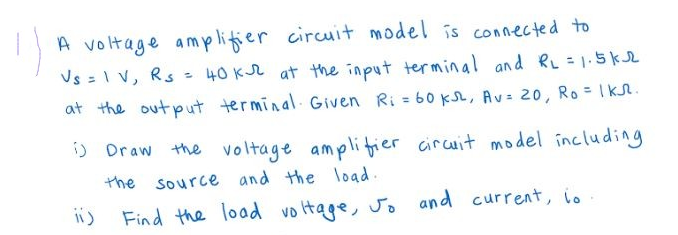 1) A voltage amplifier circuit model is connected to
Vs = 1 V, Rs = 40 kΩ at the input terminal and RL = 1.5 kΩ
at the output terminal. Given Ri = 60 kΩ, Av = 20, Ro = 1 kΩ.
i) Draw the voltage amplifier circuit model including
the source and the load.
ii) Find the load voltage, vo and current, io.